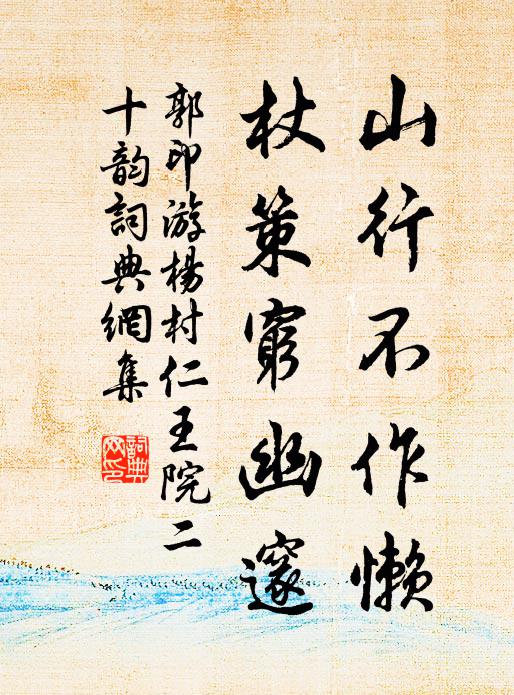 山行不作懒
杖策窮幽邃
郭印游楊村仁王院二
十韵詞典網集
詞典